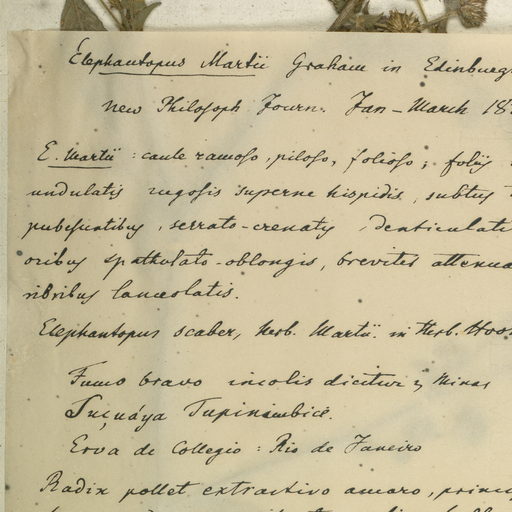 Elephantopus Martii Graham in Edinburg
new Philosoph Journ. Jan-March 18
E. Martii : caule ramoso, piloso, folioso; foliis
undulatis rugosis superne hispidis, subtus
pubescentibus, serrato-crenatis denticulati
oribus spathulato-oblongis, breviter attenua
rioribus lanceolatis.
Elephantopus scaber, Herb. Martii. in Herb. Hoo
Fumo bravo incolis dicitur Minas
Suçuáya Tupinambicè.
Erva de Collegio : Rio de Janeiro
Radix pollet extractivo amaro, princi